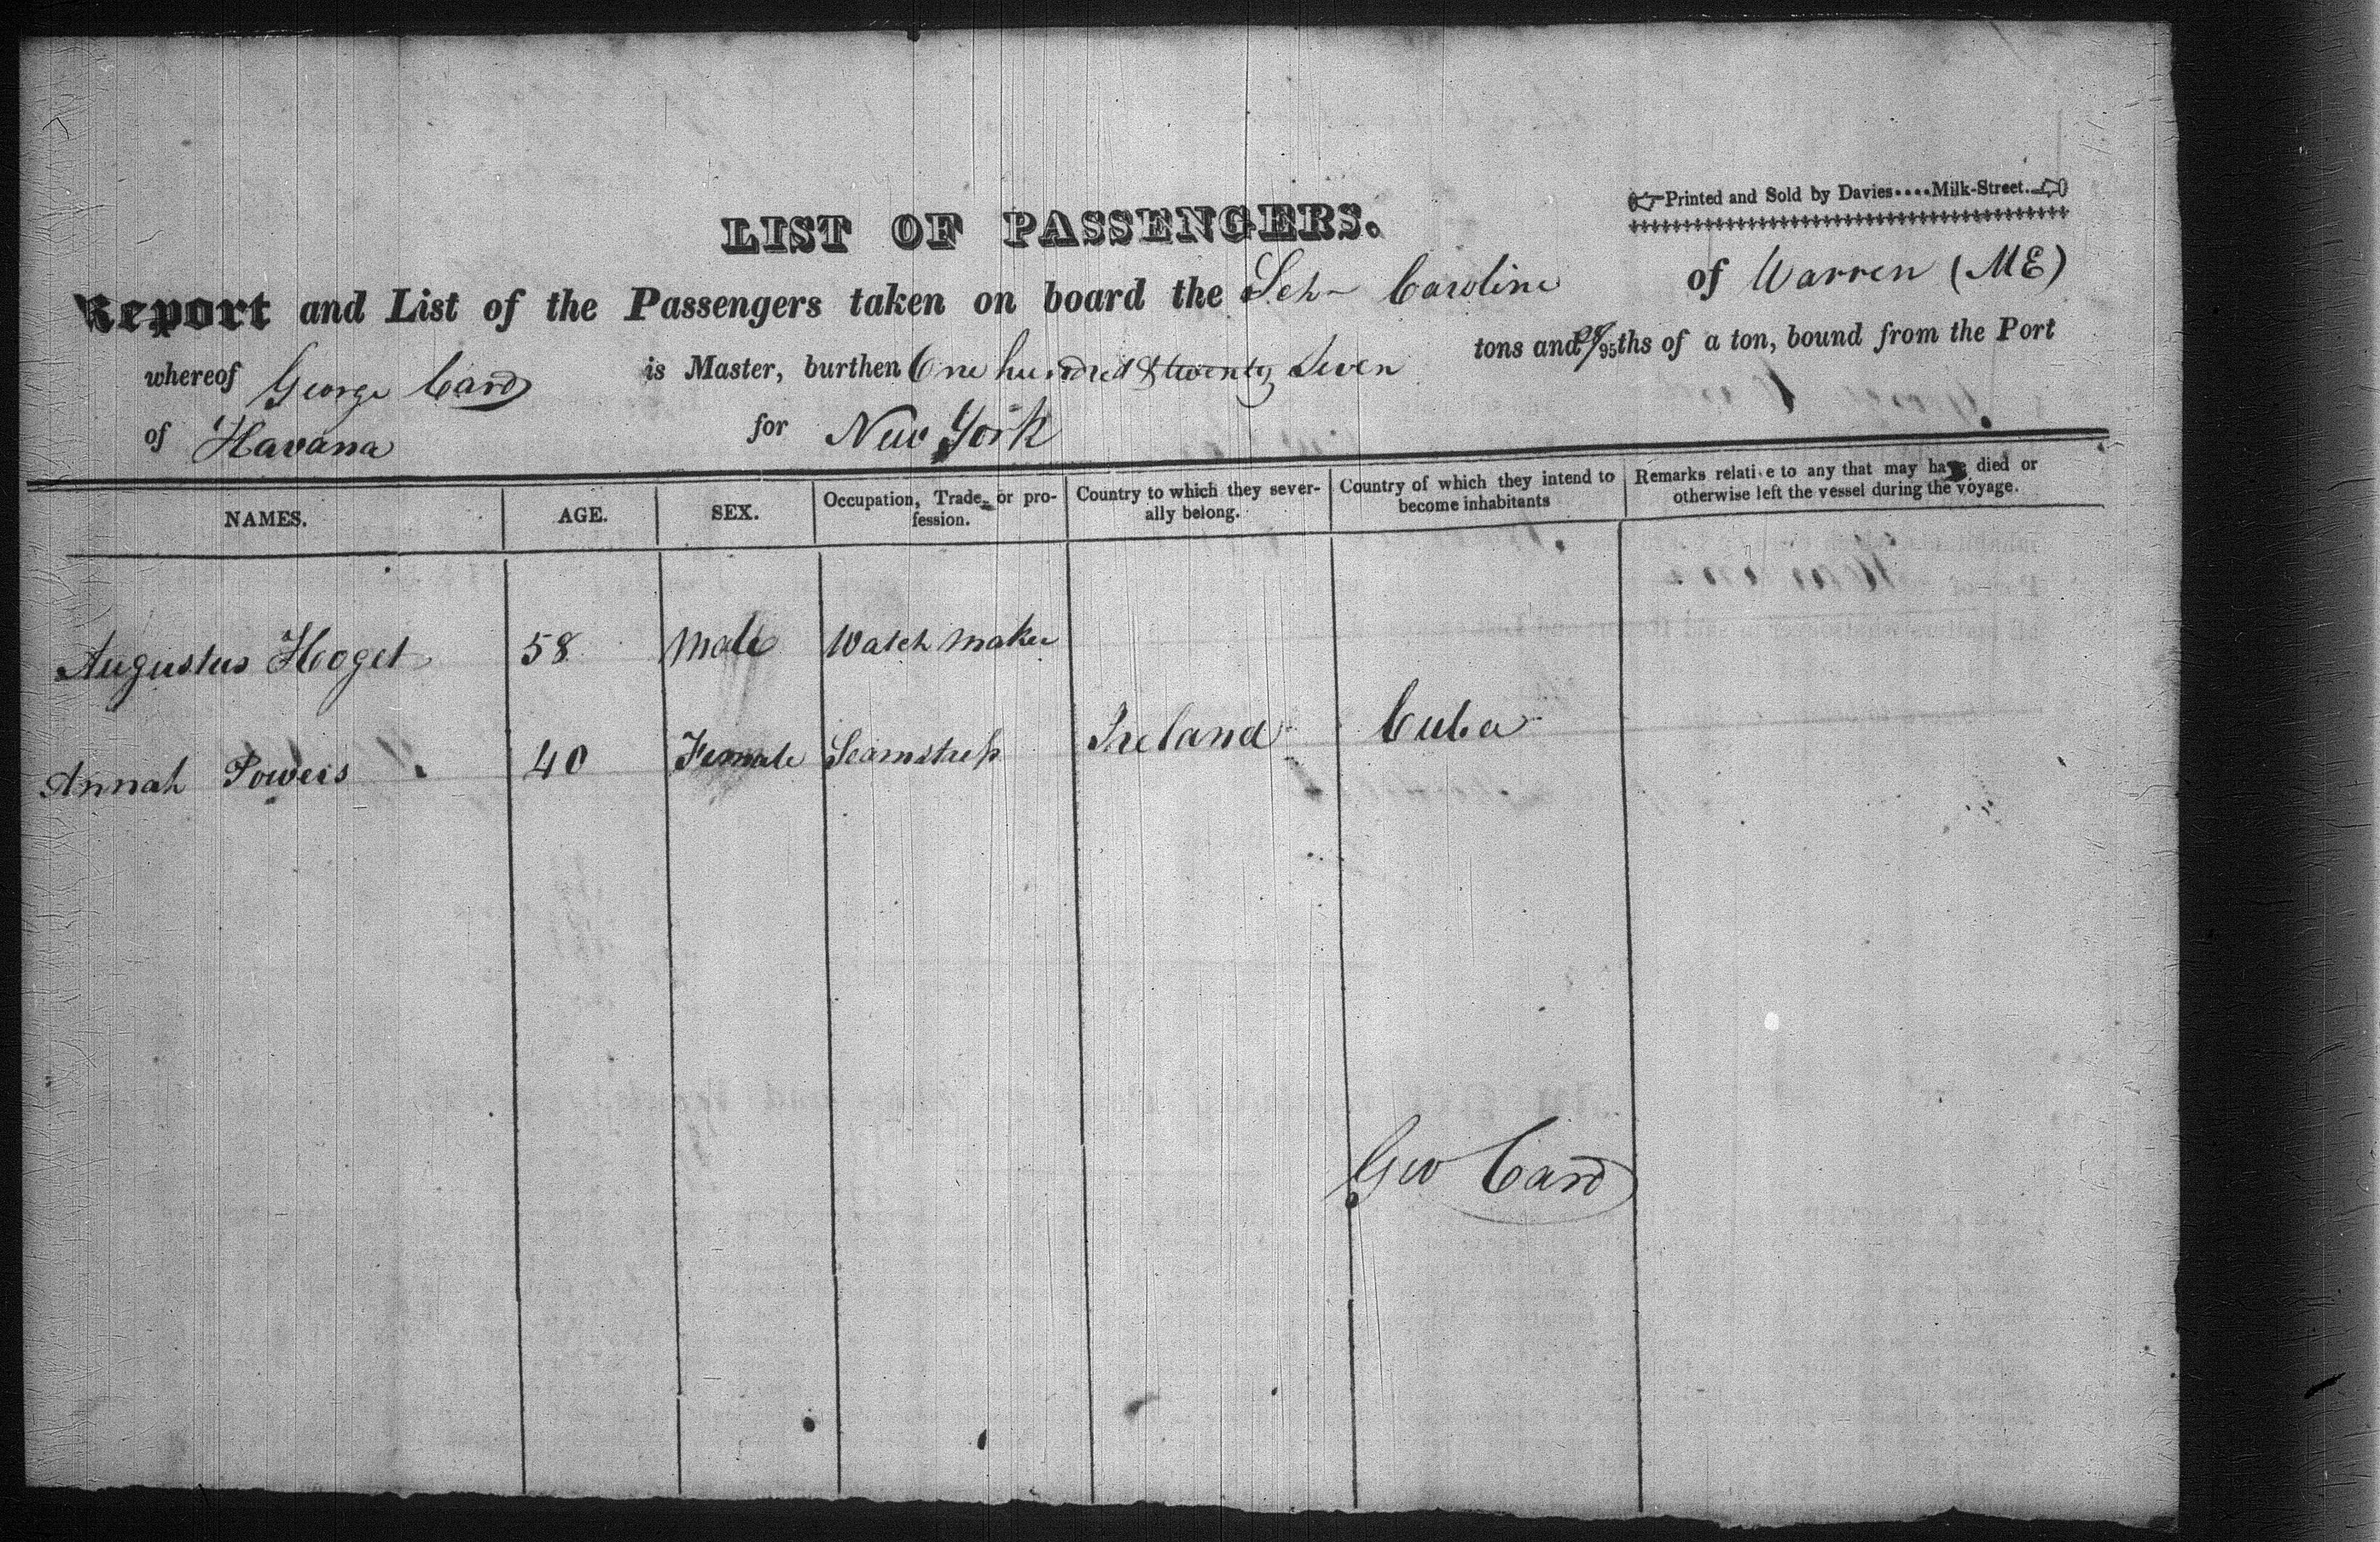 Printed and Sold by Davies....Milk-Street.
LIST OF PASSENGERS.
Report and List of the Passengers taken on board the Schr Caroline of Warren (ME)
whereof George Card is Master, burthen One hundred & twenty Seven tons and /95ths of a ton, bound from the Port
of Havana for New York
NAMES. AGE. SEX. Occupation, Trade, or pro-fession. Country to which they sever-ally belong. Country of which they intend to become inhabitants Remarks relative to any that may have died or otherwise left the vessel during the voyage.
Augustus Hoget 58 Male Watch maker
Annah Powers 40 Female Seamstress Ireland Cuba
Geo Card